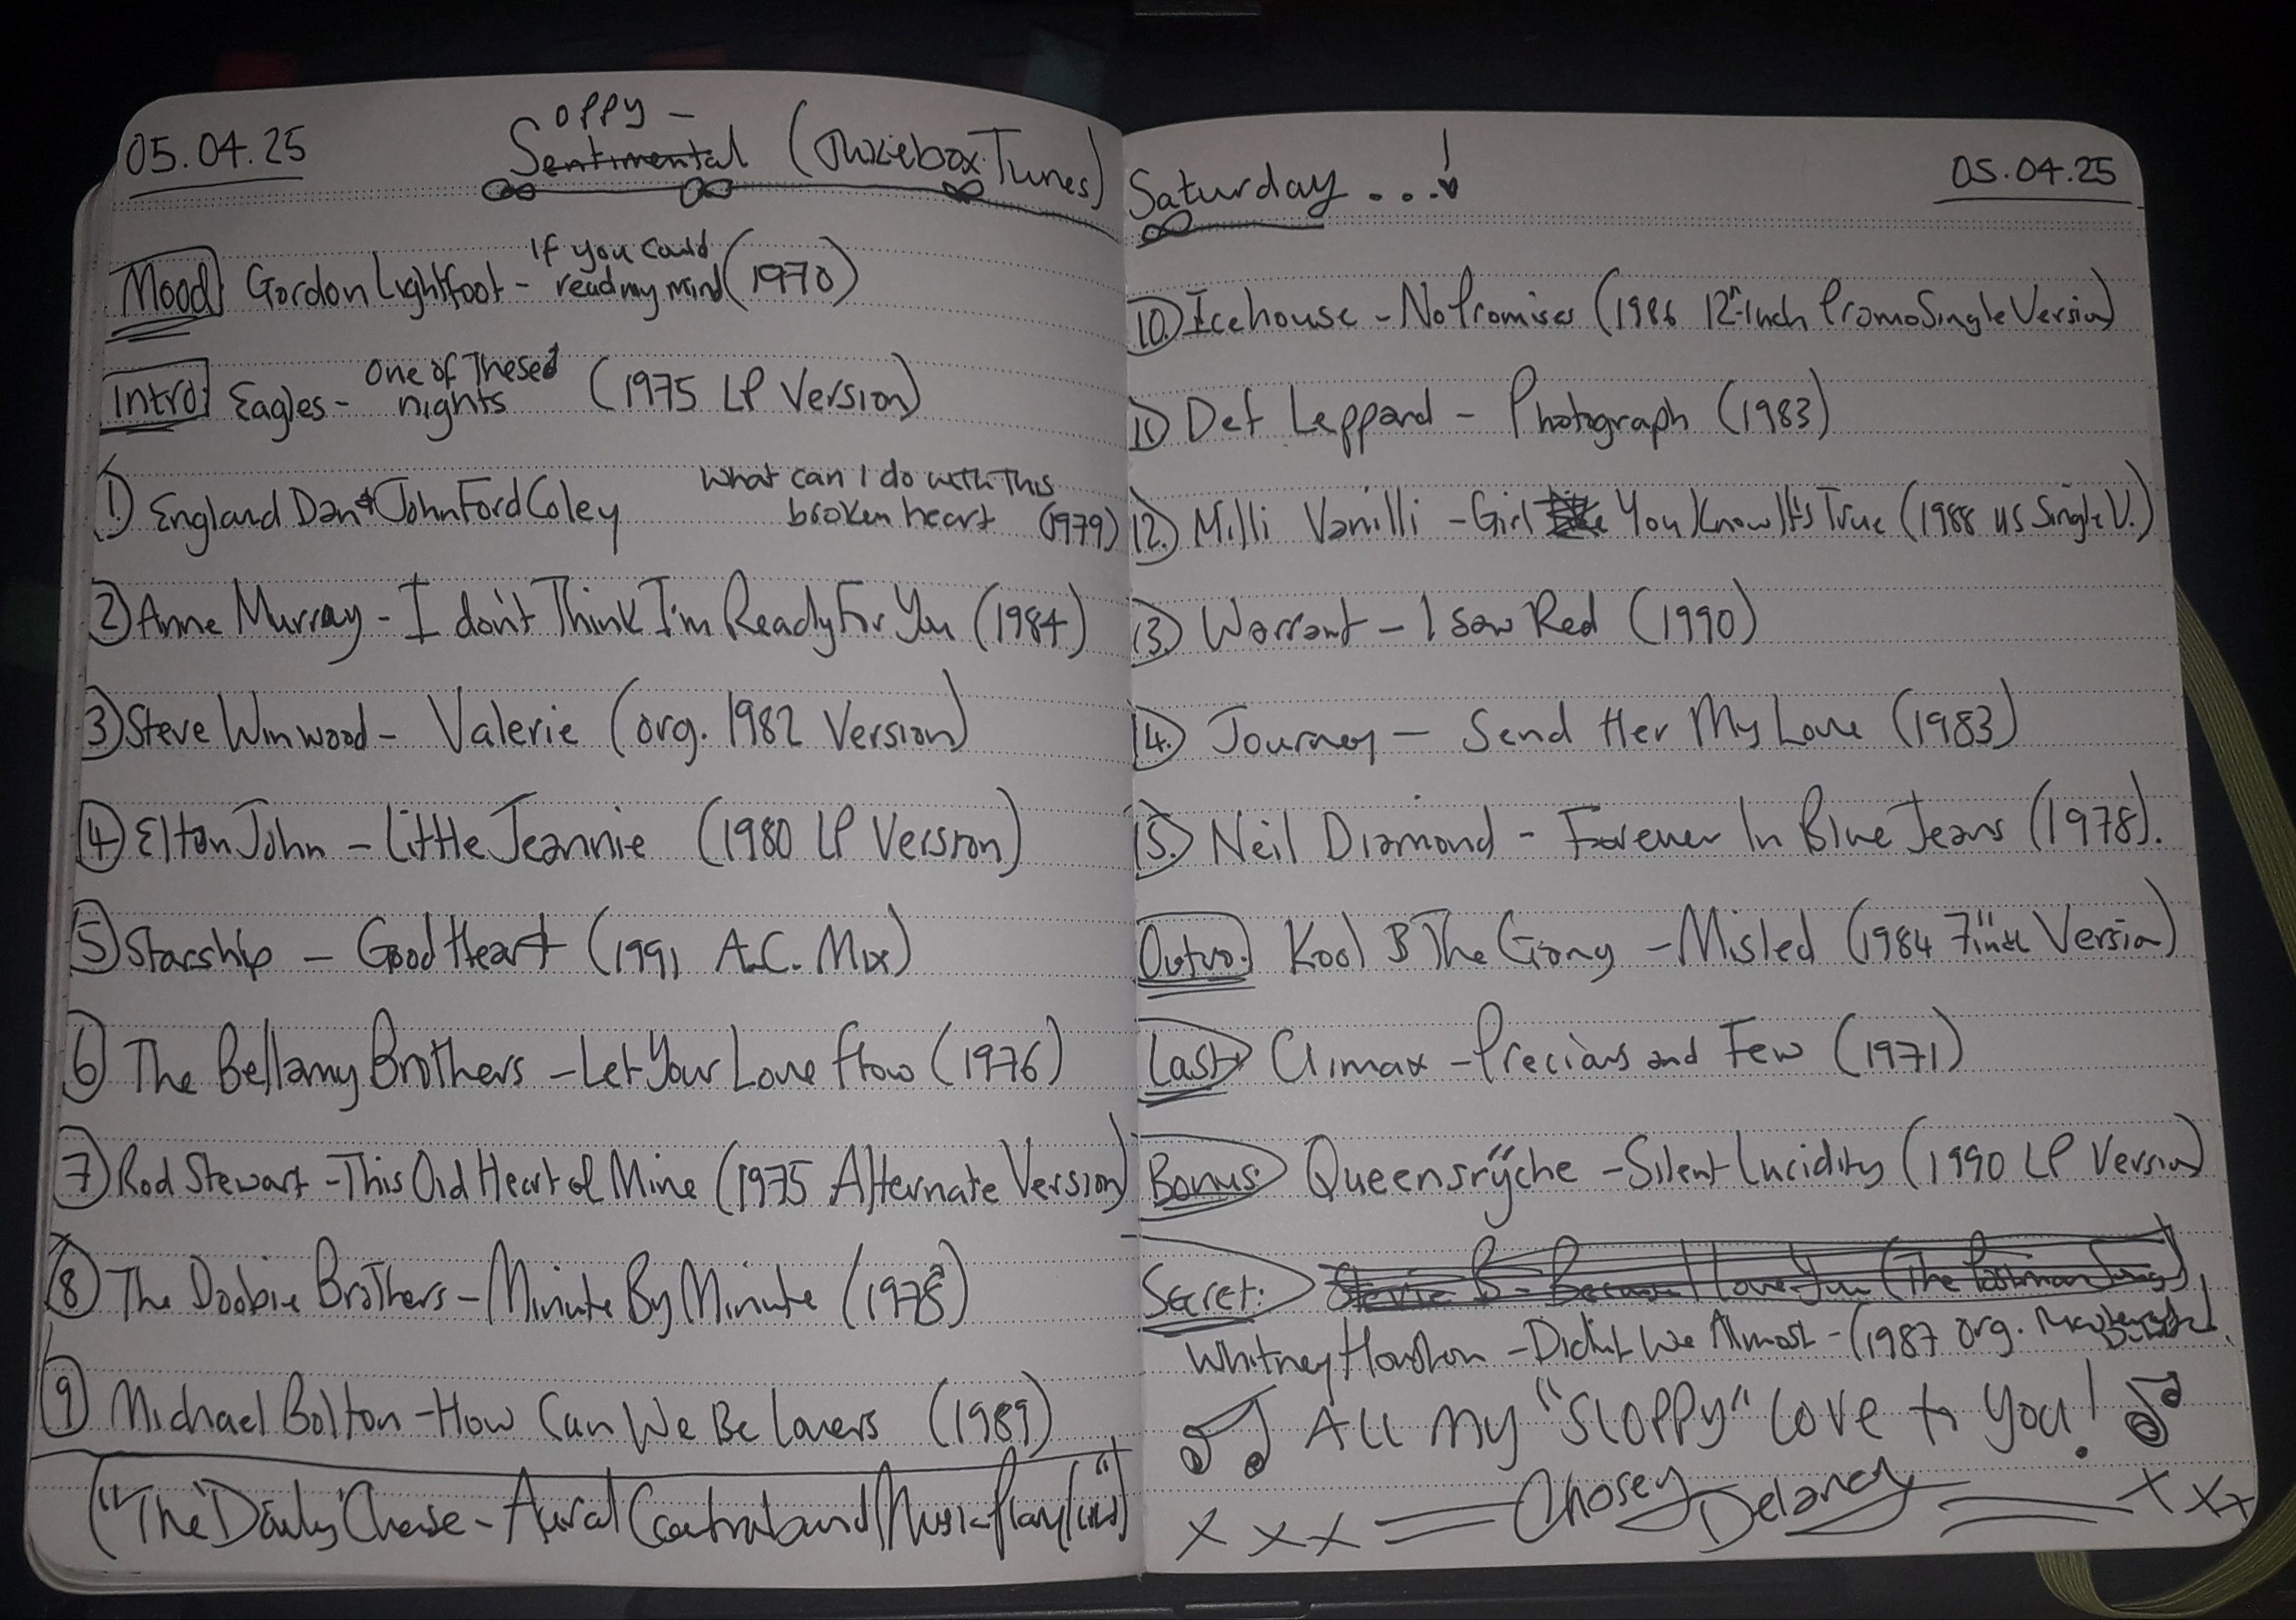 05.04.25
Soppy -
Sentimental (Jukebox Tunes)
Mood: Gordon Lightfoot - If you could read my mind (1970)
Intro: Eagles - One of These nights (1975 LP Version)
1) England Dan & John Ford Coley What can I do with This broken heart (1979)
2) Anne Murray - I don't Think I'm Ready For You (1984)
3) Steve Winwood - Valerie (org. 1982 Version)
4) Elton John - Little Jeannie (1980 LP Version)
5) Starship - Good Heart (1991 A.C. Mix)
6) The Bellamy Brothers - Let Your Love flow (1976)
7) Rod Stewart - This Old Heart of Mine (1975 Alternate Version)
8) The Doobie Brothers - Minute By Minute (1978)
9) Michael Bolton - How Can We Be Lovers (1989)
("The Daily Chase - Aural Contraband Music Play
Saturday...!
05.04.25
10.) Icehouse - No Promises (1986 12"-Inch Promo Single Version)
11) Def Leppard - Photograph (1983)
12.) Milli Vanilli - Girl You Know It's True (1988 US Single V.)
13.) Warrant - I Saw Red (1990)
14.) Journey - Send Her My Love (1983)
15.) Neil Diamond - Forever In Blue Jeans (1978).
Outro: Kool & The Gang - Misled (1984 7" inch Version)
Last: Climax - Precious and Few (1971)
Bonus: Queensrÿche - Silent Lucidity (1990 LP Version)
Secret: Stevie B - Because I Love You (The Postman Song)
Whitney Houston - Didn't We Almost - (1987 org.
All My "SLOPPY" Love to You!
x x x Chosey Delaney x x x